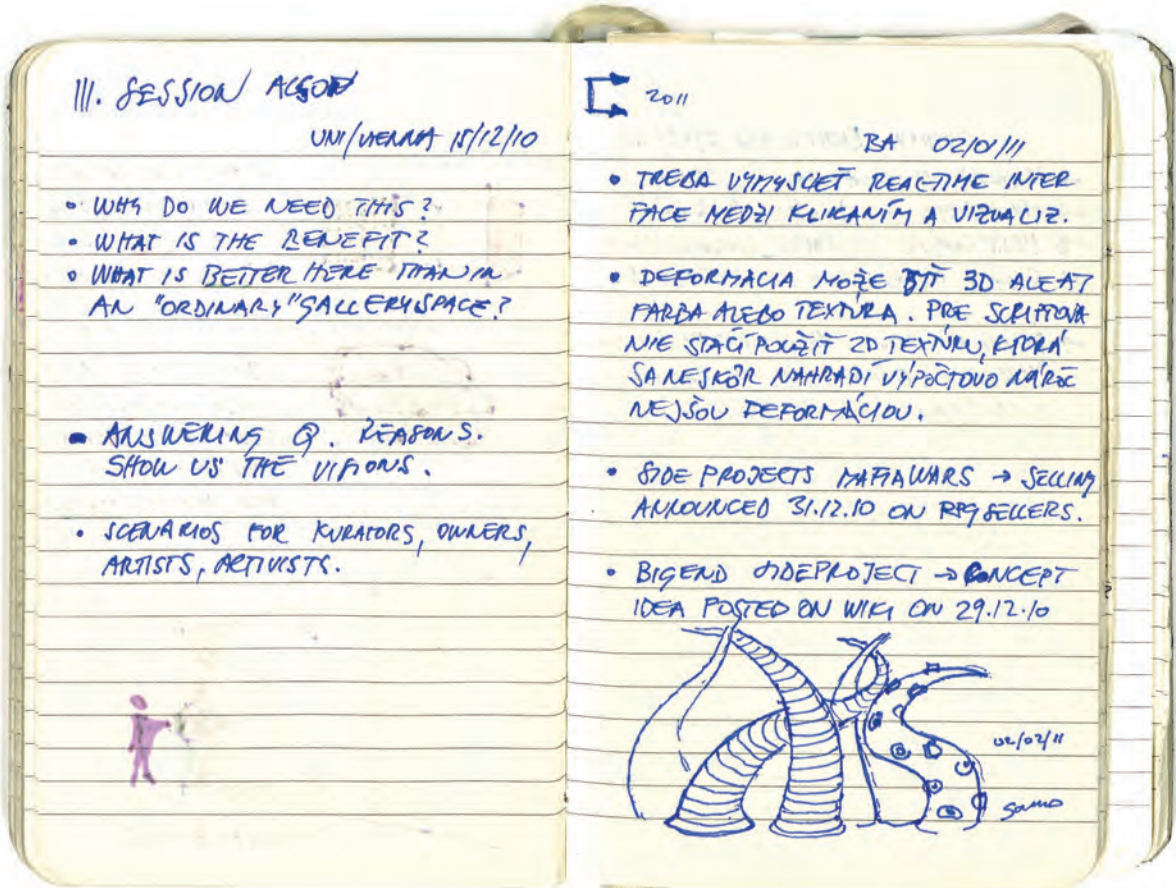 III. SESSION
UNI/VIENNA 15/12/10
• WHY DO WE NEED THIS?
• WHAT IS THE BENEFIT?
• WHAT IS BETTER HERE THAN IN
AN "ORDINARY" GALLERYSPACE?
• ANSWERING Q. REASONS.
SHOW US THE VISIONS.
• SCENARIOS FOR KURATORS, OWNERS,
ARTISTS, ACTIVISTS.
2011
BA 02/01/11
• TREBA VYMYSLIEŤ REAL-TIME INTER
FACE MEDZI KLIKANÍM A VIZUALIZ.
• DEFORMÁCIA MOŽE BYŤ 3D
FARBA ALEBO TEXTÚRA. PRE
NIE STAČÍ POUŽIŤ 2D TEXTÚRU, KTORÁ
SA NESKÔR NAHRADÍ VÝPOČTOVO NÁROČ
NEJŠOU DEFORMÁCIOU.
• SIDE PROJECTS MAFIAWARS → SELLING
ANNOUNCED 31.12.10 ON RPGSELLERS.
• BIGEND SIDEPROJECT → CONCEPT
IDEA POSTED ON WIKI ON 29.12.10
02/02/11
Samo